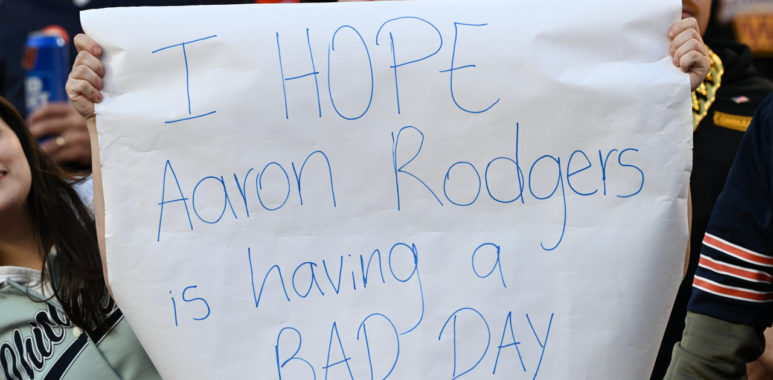 I HOPE
Aaron Rodgers
is having a
BAD DAY